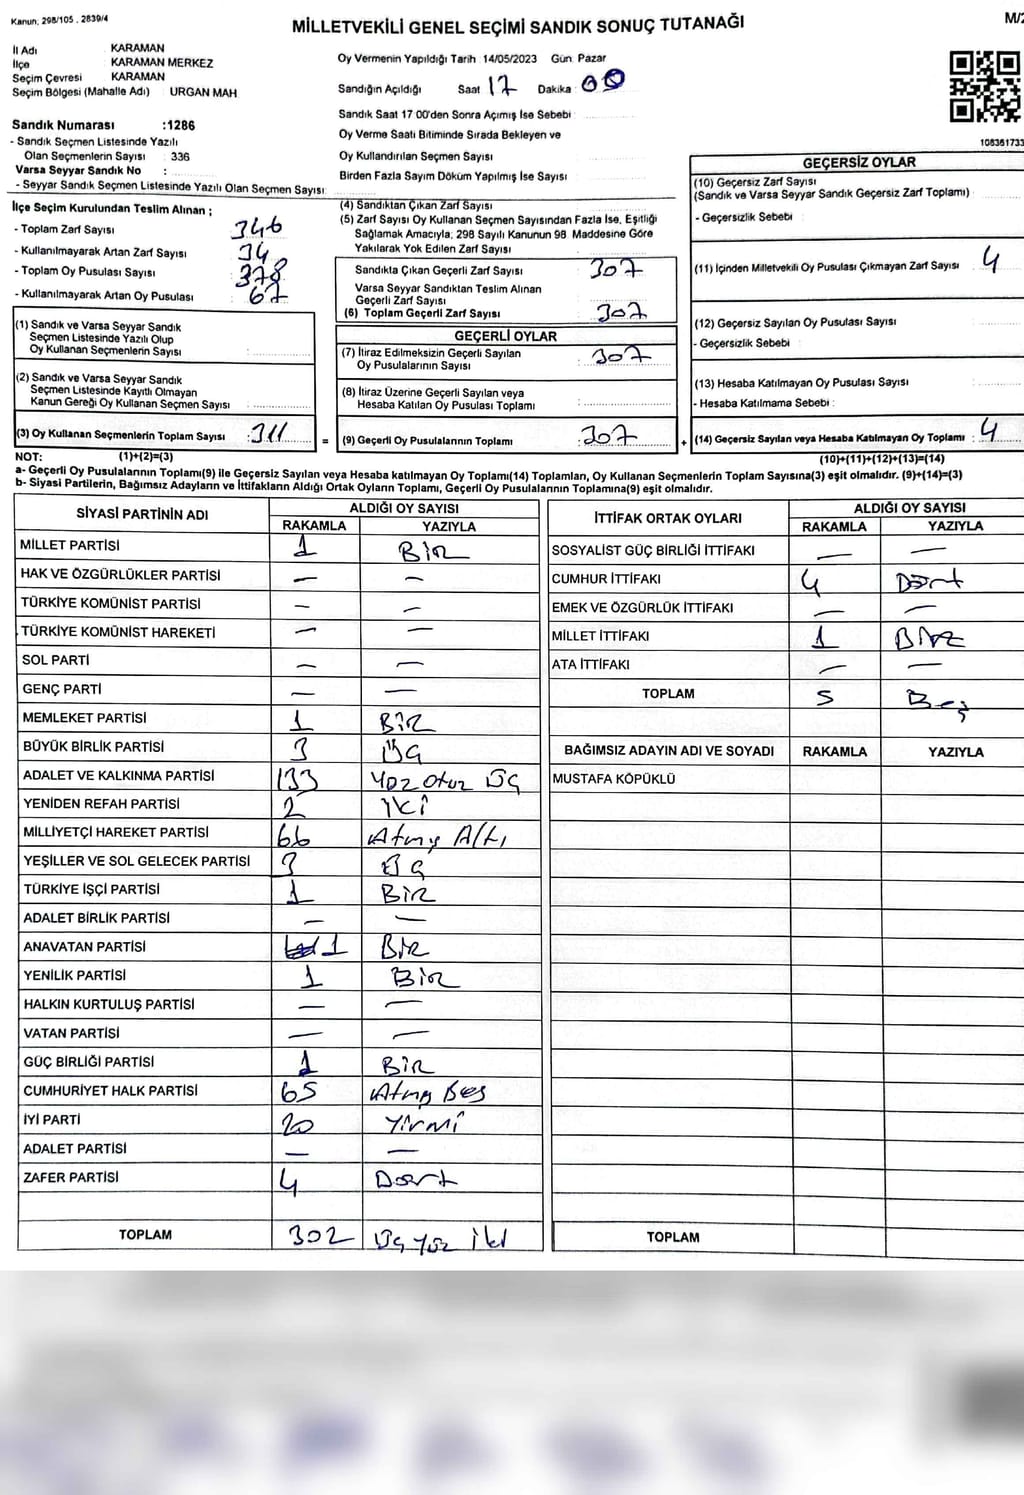 Kanun; 298/105 , 2839/4
MİLLETVEKİLİ GENEL SEÇİMİ SANDIK SONUÇ TUTANAĞI
M/2
İl Adı KARAMAN
İlçe KARAMAN MERKEZ
Seçim Çevresi KARAMAN
Seçim Bölgesi (Mahalle Adı) URGAN MAH
Sandık Numarası :1286
- Sandık Seçmen Listesinde Yazılı
Olan Seçmenlerin Sayısı : 336
Varsa Seyyar Sandık No :
- Seyyar Sandık Seçmen Listesinde Yazılı Olan Seçmen Sayısı:
Oy Vermenin Yapıldığı Tarih :14/05/2023 Gün: Pazar
Sandığın Açıldığı Saat 17 Dakika : 00
Sandık Saat 17 00'den Sonra Açılmış İse Sebebi :
Oy Verme Saati Bitiminde Sırada Bekleyen ve
Oy Kullandırılan Seçmen Sayısı
Birden Fazla Sayım Döküm Yapılmış İse Sayısı :
108361733
İlçe Seçim Kurulundan Teslim Alınan ;
- Toplam Zarf Sayısı : 346
- Kullanılmayarak Artan Zarf Sayısı : 34
- Toplam Oy Pusulası Sayısı : 378
- Kullanılmayarak Artan Oy Pusulası : 67
(1) Sandık ve Varsa Seyyar Sandık
Seçmen Listesinde Yazılı Olup
Oy Kullanan Seçmenlerin Sayısı :
(2) Sandık ve Varsa Seyyar Sandık
Seçmen Listesinde Kayıtlı Olmayan
Kanun Gereği Oy Kullanan Seçmen Sayısı :
(3) Oy Kullanan Seçmenlerin Toplam Sayısı : 311
(4) Sandıktan Çıkan Zarf Sayısı :
(5) Zarf Sayısı Oy Kullanan Seçmen Sayısından Fazla İse, Eşitliği
Sağlamak Amacıyla; 298 Sayılı Kanunun 98. Maddesine Göre
Yakılarak Yok Edilen Zarf Sayısı :
Sandıkta Çıkan Geçerli Zarf Sayısı : 307
Varsa Seyyar Sandıktan Teslim Alınan
Geçerli Zarf Sayısı :
(6) Toplam Geçerli Zarf Sayısı : 307
GEÇERLİ OYLAR
(7) İtiraz Edilmeksizin Geçerli Sayılan
Oy Pusulalarının Sayısı : 307
(8) İtiraz Üzerine Geçerli Sayılan veya
Hesaba Katılan Oy Pusulası Toplamı :
= (9) Geçerli Oy Pusulalarının Toplamı : 307
GEÇERSİZ OYLAR
(10) Geçersiz Zarf Sayısı
(Sandık ve Varsa Seyyar Sandık Geçersiz Zarf Toplamı) :
- Geçersizlik Sebebi :
(11) İçinden Milletvekili Oy Pusulası Çıkmayan Zarf Sayısı : 4
(12) Geçersiz Sayılan Oy Pusulası Sayısı :
- Geçersizlik Sebebi :
(13) Hesaba Katılmayan Oy Pusulası Sayısı :
- Hesaba Katılmama Sebebi :
+ (14) Geçersiz Sayılan veya Hesaba Katılmayan Oy Toplamı : 4
NOT: (1)+(2)=(3)
(10)+(11)+(12)+(13)=(14)
a- Geçerli Oy Pusulalarının Toplamı(9) ile Geçersiz Sayılan veya Hesaba katılmayan Oy Toplamı(14) Toplamları, Oy Kullanan Seçmenlerin Toplam Sayısına(3) eşit olmalıdır. (9)+(14)=(3)
b- Siyasi Partilerin, Bağımsız Adayların ve İttifakların Aldığı Ortak Oyların Toplamı, Geçerli Oy Pusulalarının Toplamına(9) eşit olmalıdır.
SİYASİ PARTİNİN ADI ALDIĞI OY SAYISI
RAKAMLA YAZIYLA
MİLLET PARTİSİ 1 Bir
HAK VE ÖZGÜRLÜKLER PARTİSİ — —
TÜRKİYE KOMÜNİST PARTİSİ — —
TÜRKİYE KOMÜNİST HAREKETİ — —
SOL PARTİ — —
GENÇ PARTİ — —
MEMLEKET PARTİSİ 1 BİR
BÜYÜK BİRLİK PARTİSİ 3 ÜÇ
ADALET VE KALKINMA PARTİSİ 133 Yüz otuz üç
YENİDEN REFAH PARTİSİ 2 İKİ
MİLLİYETÇİ HAREKET PARTİSİ 66 Atmış Altı
YEŞİLLER VE SOL GELECEK PARTİSİ 3 Üç
TÜRKİYE İŞÇİ PARTİSİ 1 BİR
ADALET BİRLİK PARTİSİ — —
ANAVATAN PARTİSİ 1 Bir
YENİLİK PARTİSİ 1 Bir
HALKIN KURTULUŞ PARTİSİ — —
VATAN PARTİSİ — —
GÜÇ BİRLİĞİ PARTİSİ 1 Bir
CUMHURİYET HALK PARTİSİ 65 Atmış Beş
İYİ PARTİ 20 Yirmi
ADALET PARTİSİ — —
ZAFER PARTİSİ 4 Dört
TOPLAM 302 Üç Yüz İki
İTTİFAK ORTAK OYLARI ALDIĞI OY SAYISI
RAKAMLA YAZIYLA
SOSYALİST GÜÇ BİRLİĞİ İTTİFAKI — —
CUMHUR İTTİFAKI 4 Dört
EMEK VE ÖZGÜRLÜK İTTİFAKI — —
MİLLET İTTİFAKI 1 Bir
ATA İTTİFAKI — —
TOPLAM 5 Beş
BAĞIMSIZ ADAYIN ADI VE SOYADI RAKAMLA YAZIYLA
MUSTAFA KÖPÜKLÜ
TOPLAM